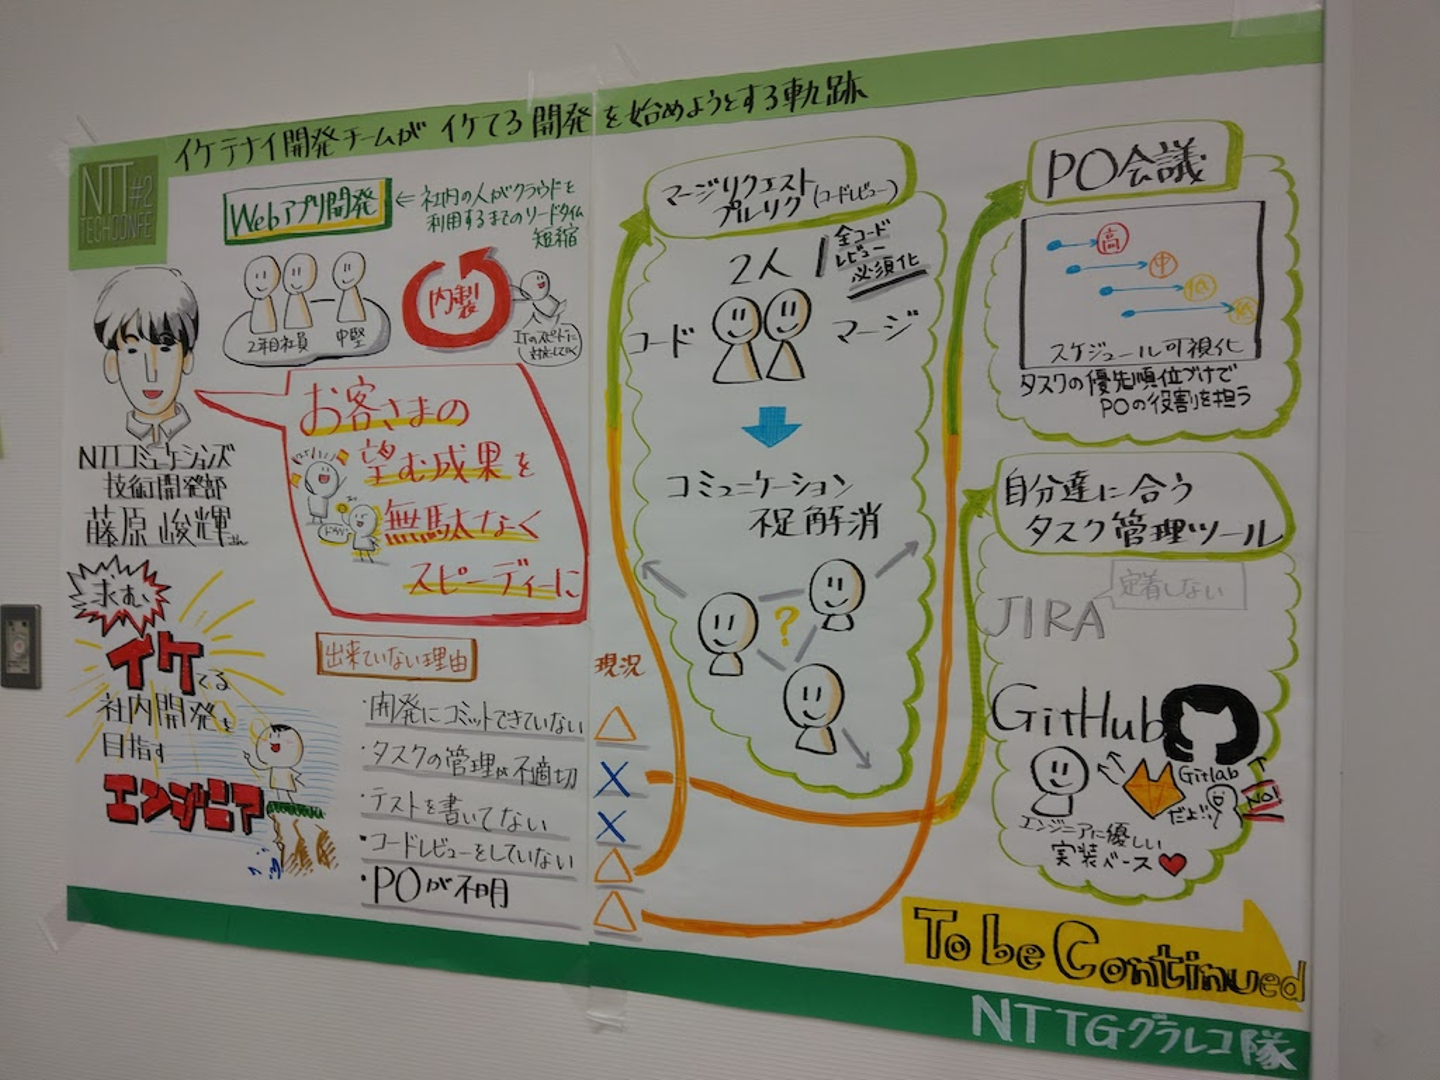 イケテナイ開発チームが イケてる開発を始めようとする軌跡
NTT#2
TECHCONFE
Webアプリ開発
←社内の人がクラウドを
利用するまでのリードタイム
短縮
2年目社員
中堅
内製
ITのスピードに
NTTコミュニケーションズ
技術開発部
藤原 峻輝さん
お客さまの
望む成果を
無駄なく
スピーディーに
求む
イケてる
社内開発を
目指す
エンジニア
出来ていない理由
・開発にコミットできていない
・タスクの管理が不適切
・テストを書いてない
・コードレビューをしていない
・POが不明
現況
△
X
X
△
△
マージリクエスト
プルリク(コードレビュー)
2人
全コード
レビュー
必須化
コード
マージ
コミュニケーション
不足解消
?
PO会議
高
中
低
スケジュール可視化
タスクの優先順位づけで
POの役割を担う
自分達に合う
タスク管理ツール
JIRA
定着しない
GitHub
Gitlab
だよ!!
NO!
エンジニアに優しい
実装ベース
To be Continued
NTTGグラレコ隊